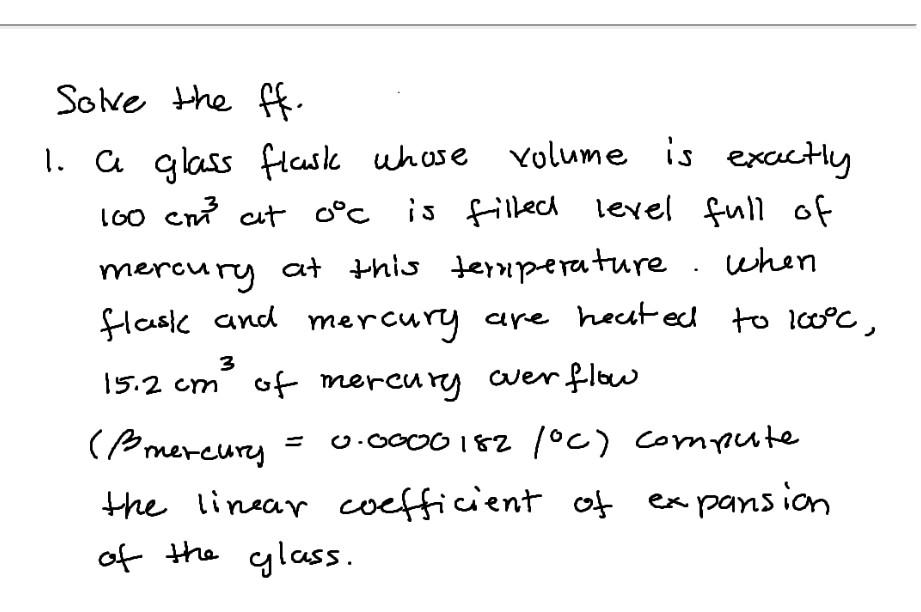 Solve the ff.
1. a glass flask whose volume is exactly
100 cm³ at 0°C is filled level full of
mercury at this temperature. When
flask and mercury are heated to 100°C,
15.2 cm³ of mercury overflow
(βmercury = 0.0000182 /°C) compute
the linear coefficient of expansion
of the glass.